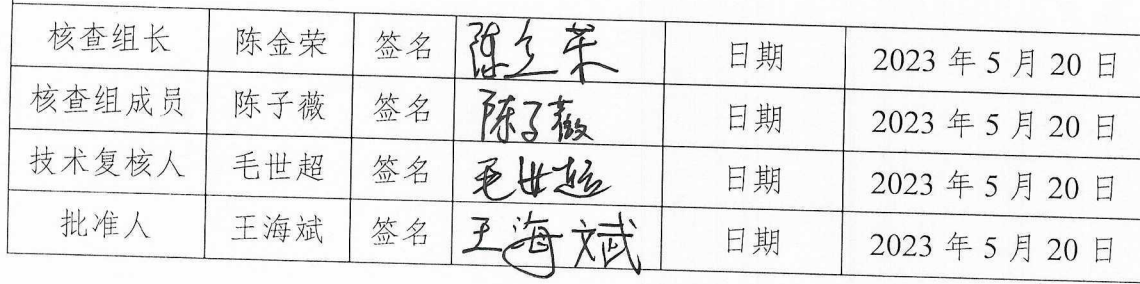 核查组长 陈金荣 签名 陈金荣 日期 2023 年 5 月 20 日
核查组成员 陈子薇 签名 陈子薇 日期 2023 年 5 月 20 日
技术复核人 毛世超 签名 毛世超 日期 2023 年 5 月 20 日
批准人 王海斌 签名 王海斌 日期 2023 年 5 月 20 日